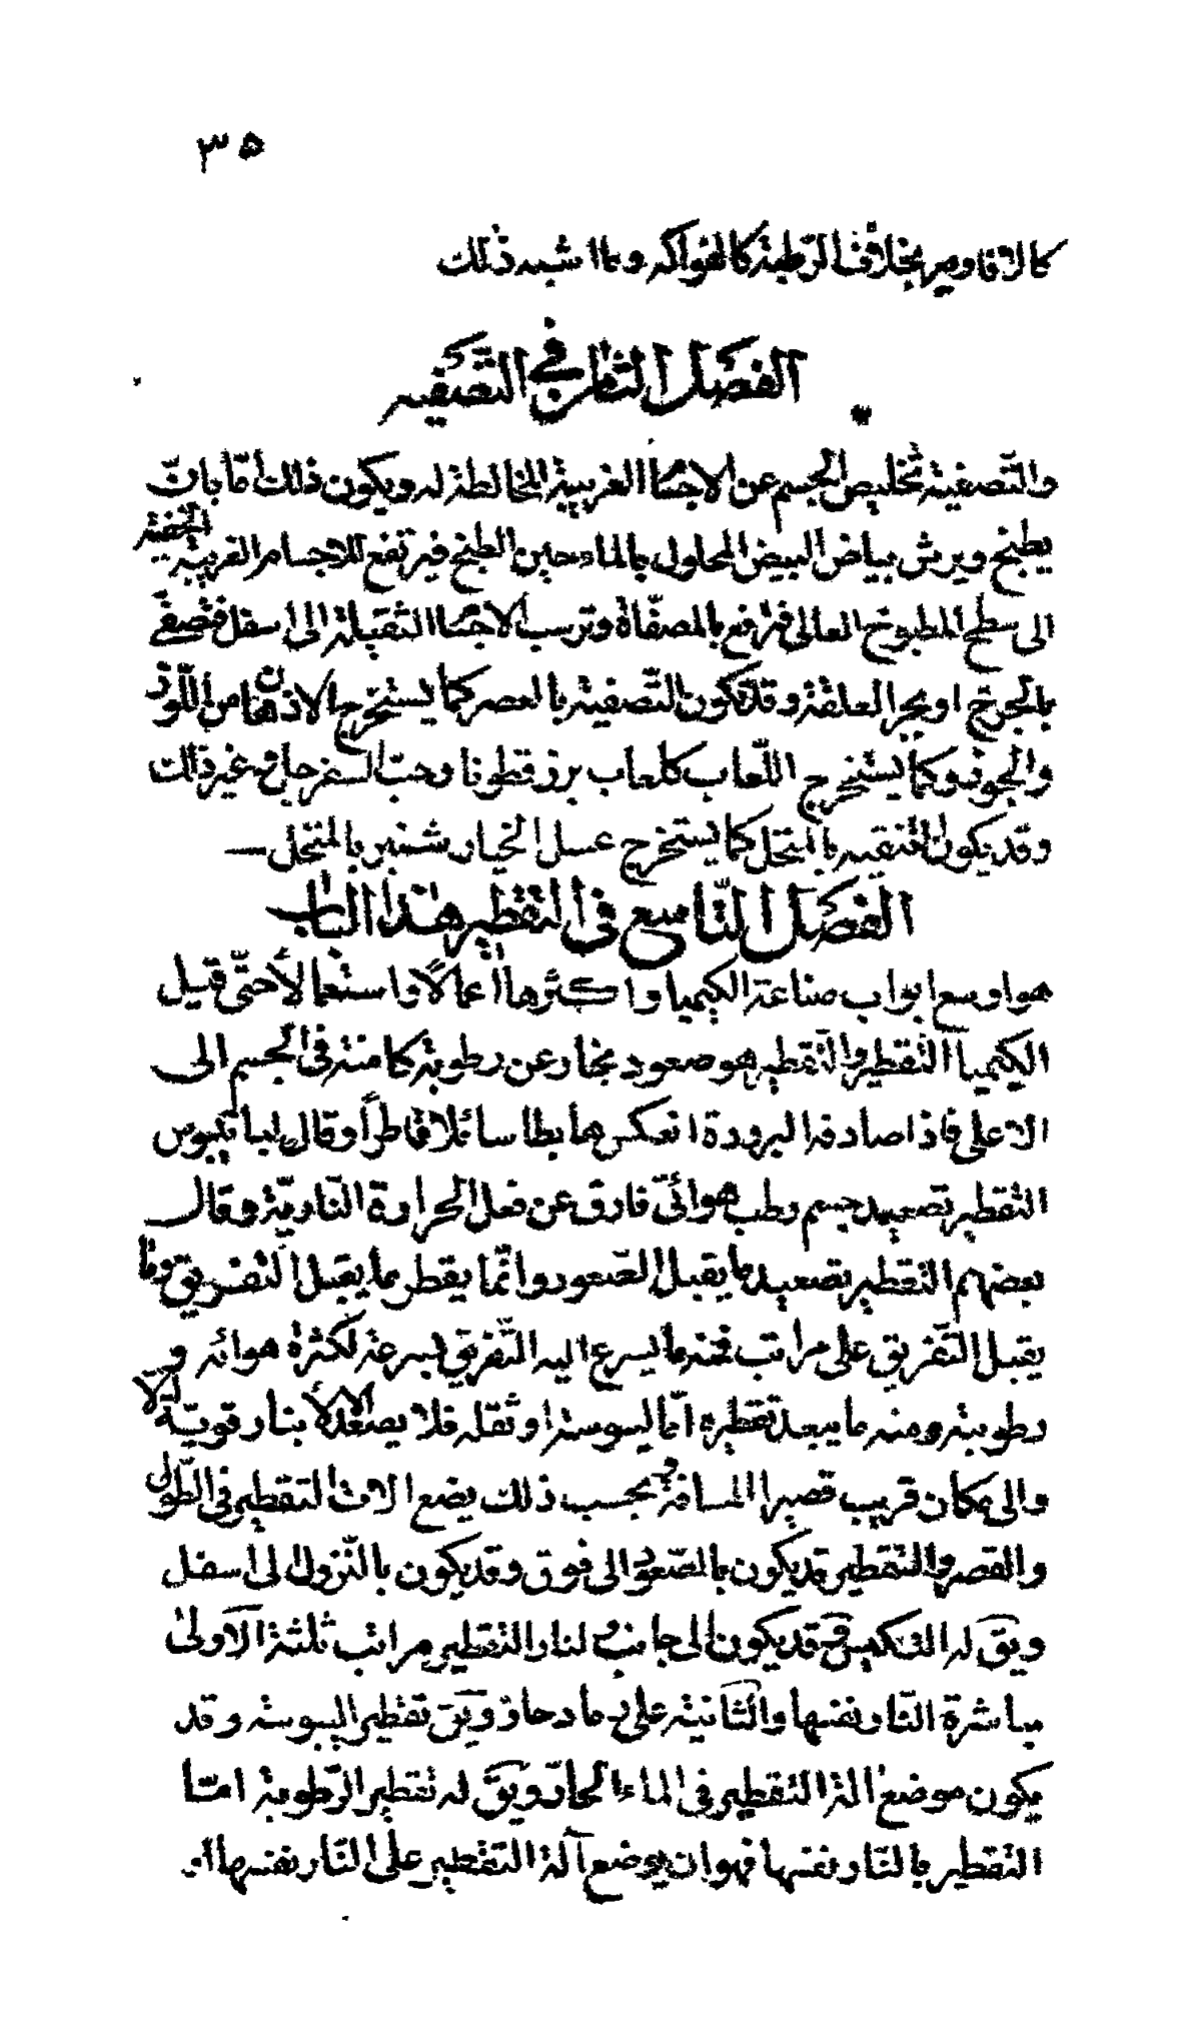 ٣٥
كالافاويه بخلاف الرطبة كالفواكه وما اشبه ذلك
الفصل الثامن في التصفيه
والتصفية تخليص الجسم عن الاجسا الغريبة المخالطة له ويكون ذلك امّا بانّ
يطبخ ويرش بياض البيض المحلول بالماء حين الطبخ فيرتفع للاجسام الغريبة الخفيفة
الى سطح المطبوخ العالى فترفع بالمصفّاة وترسب الاجسا الثقيلة الى اسفل فتصفّى
بالجوخ او بجر العلقة وقد تكون التّصفية بالعصر كما يستخرج الادهان من اللّوز
والجوز وكما يستخرج اللّعاب كلعاب بزر قطونا وحبّ السفرجل وغير ذلك
وقد يكون التنقيه بالمنخل كما يستخرج عسل الخيار شنبر بالمنخل
الفصل التّاسع في التقطير هذا الباب
هو اوسع ابواب صناعة الكيميا واكثرها اعمالاً واستعمالاً حتّى قيل
الكيميا التقطير والتقطير هو صعود بخار عن رطوبة كامنة فى الجسم الى
الاعلى فاذا صادفه البرودة انعكس هابطا سائلا قاطراً وقال ليباتيوس
التقطير تصعيد جسم رطب هوائىّ فارق عن فعل الحرارة النّاريّة وقال
بعضهم التقطير تصعيد ما يقبل الصّعود وانّما يقطر ما يقبل التفريق وما
يقبل التّفريق على مراتب فمنه ما يسرع اليه التّفريق بسرعة لكثرة هوائه و
رطوبته ومنه ما يبعد تقطيره امّا ليبوسته او ثقله فلا يصعد الا بنار قويّة
والى مكان قريب قصير المسافة بحسب ذلك يضع الات التقطير فى الطّول
والقصر والتقطير قد يكون بالصّعود الى فوق وقد يكون بالنّزول الى اسفل
ويق له التنكيس وقد يكون الى جانب لنار التقطير مراتب ثلثة الاولى
مباشرة النّار نفسها والثّانية على رماد حارّ ويق تقطير اليبوسة وقد
يكون موضع الة التقطير فى الماء الحارّ ويق له تقطير الرّطوبة امّا
التقطير بالنّار نفسها فهو ان يوضع آلة التقطير على النّار نفسها او